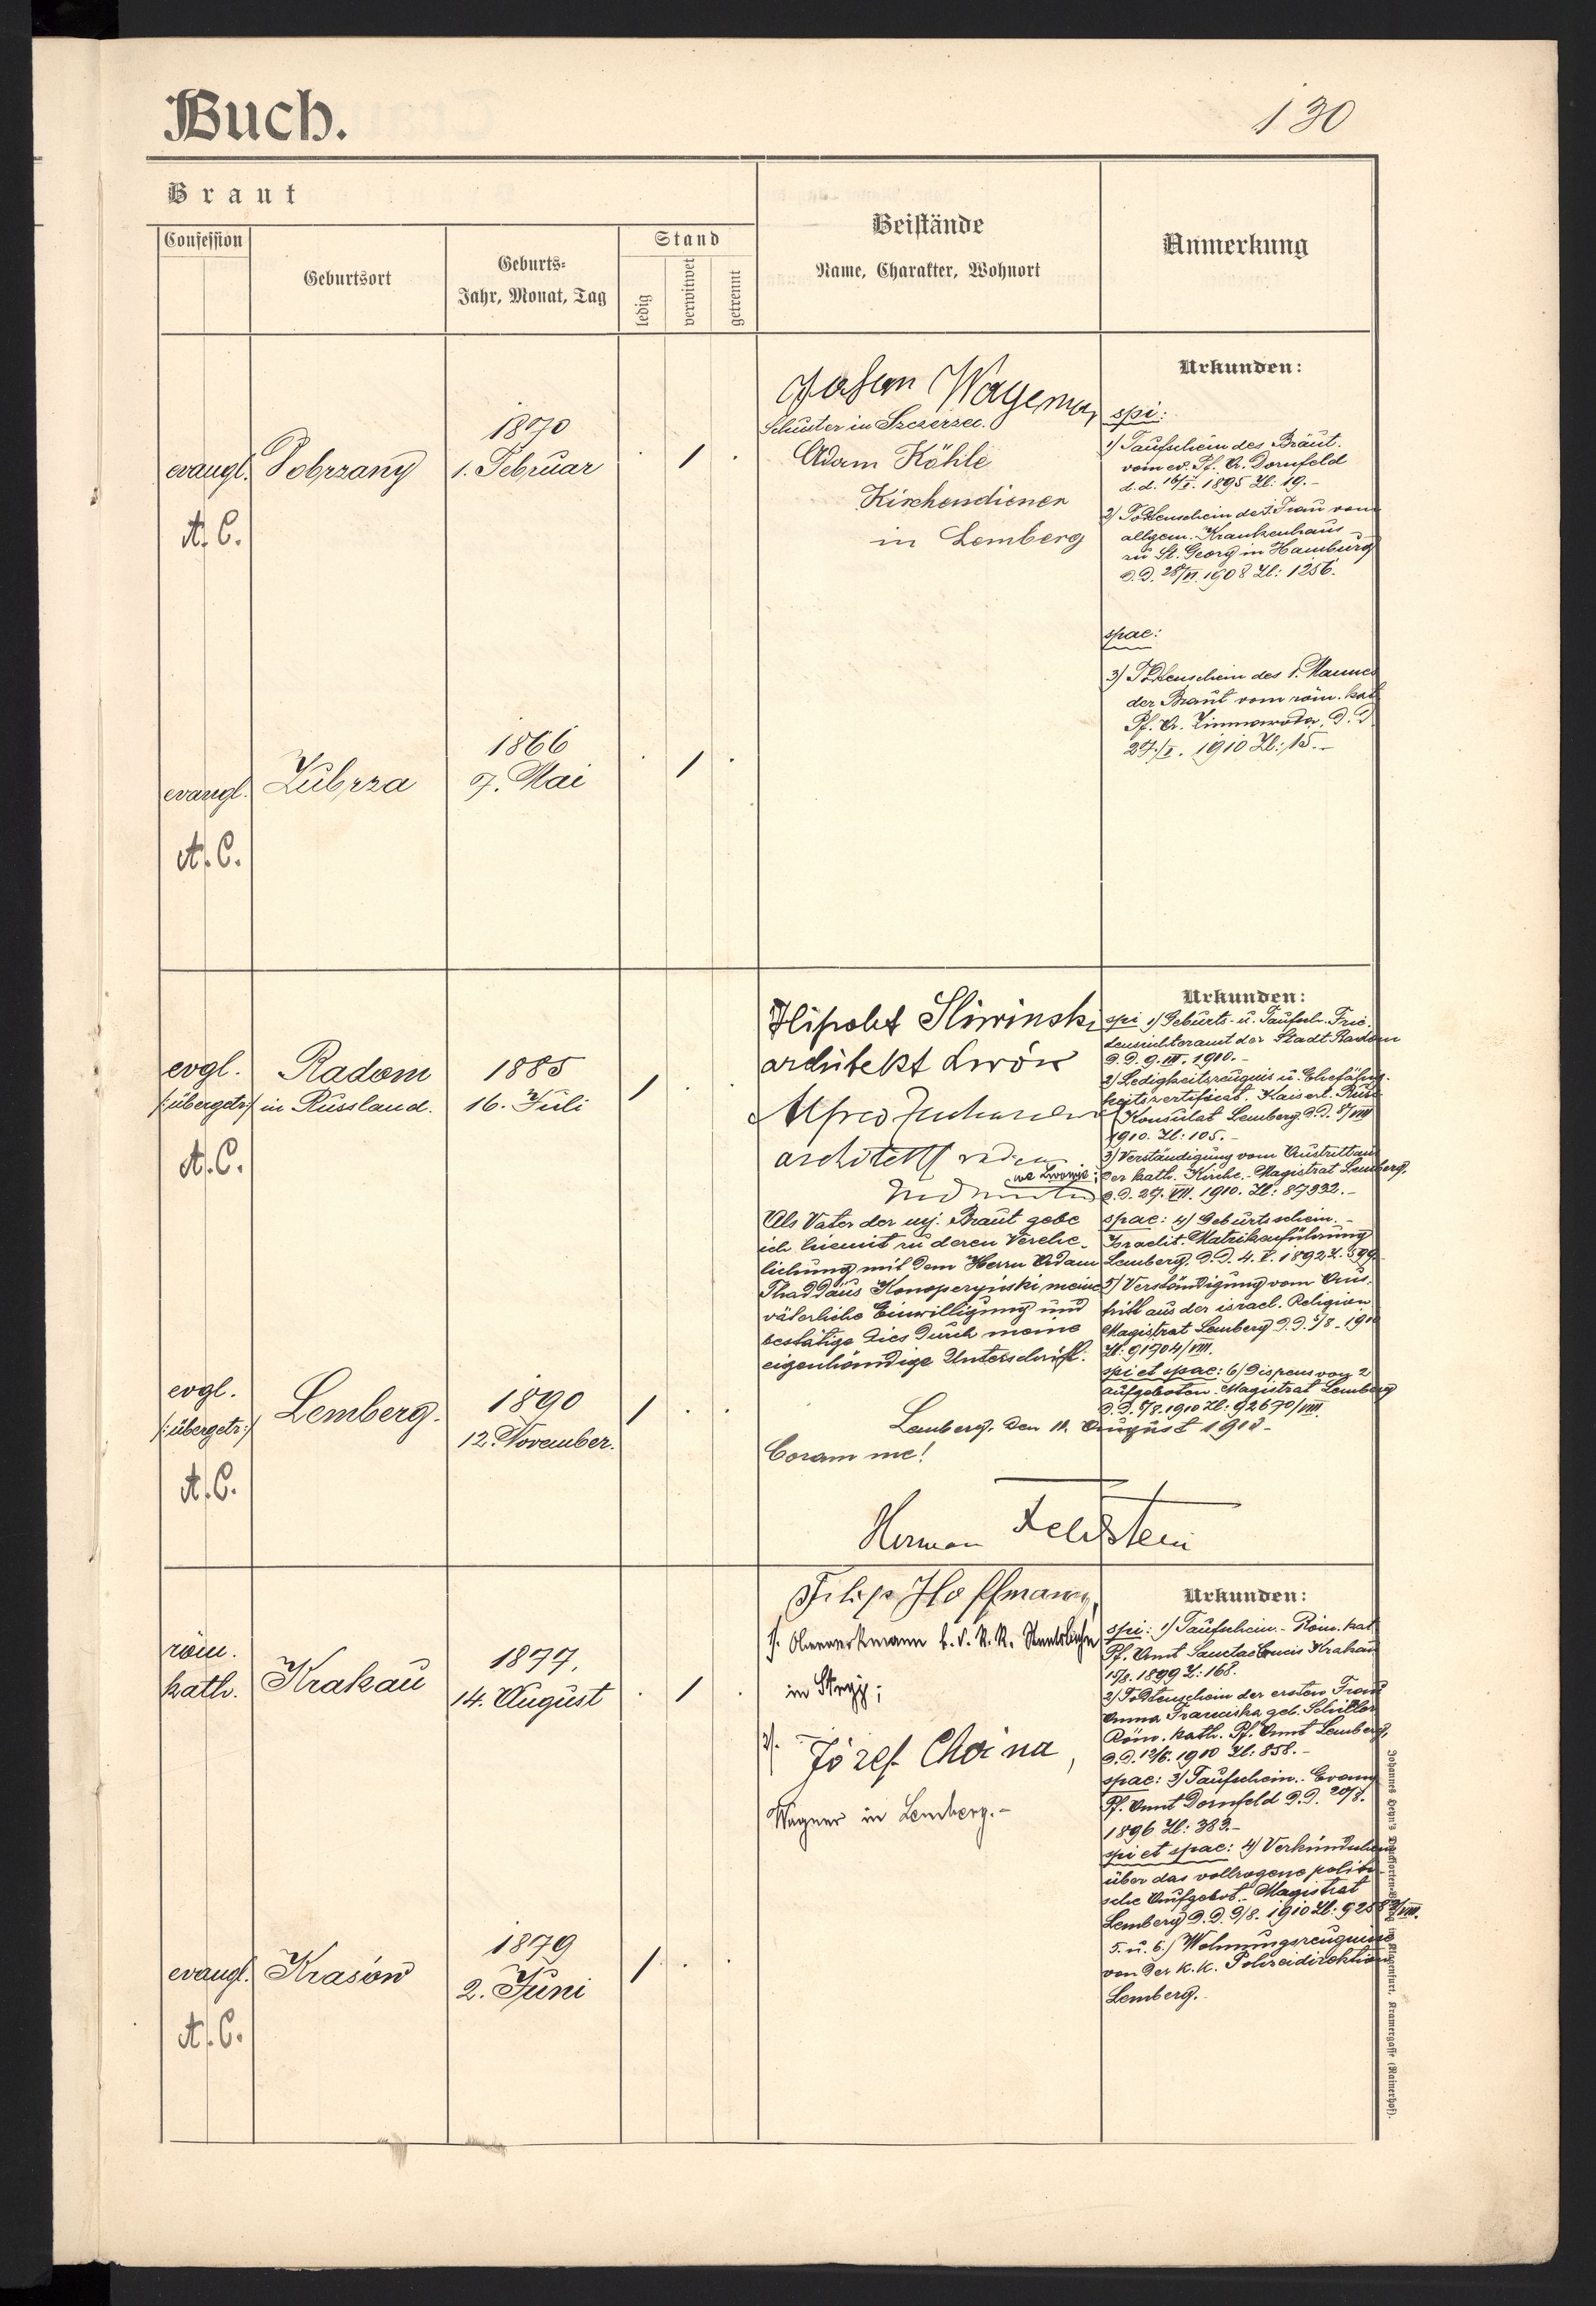 Buch.
130
Braut
Confession
Geburtsort
Geburts-
Jahr, Monat, Tag
Stand
ledig
verwitwet
getrennt
Beistände
Name, Charakter, Wohnort
Anmerkung
evangl.
A. C.
Dobrzany
1870
1. Februar
1
Wageman
Schuster in Szczerzec.
Adam Köhle
Kirchendiener
in Lemberg
Urkunden:
spi:
1) Taufschein des Bräut.
vom ev. Pf. A. Dornfeld
d. d. 16/I. 1895 Zl: 19.-
2) Todtenschein des I. Frau vom
allgem. Krankenhaus
zu St. Georg in Hamburg
d. d. 28/VI. 1908 Zl: 1256.
spae:
3) Todtenschein des 1. Mannes
der Braut vom röm. kat
Pf. A. Zimnawoda. d. d
27/I. 1910 Zl: 15.-
evangl.
A. C.
Zubrza
1866
7. Mai
1
evgl.
/:übergetr:/
A. C.
Radom
in Russland.
1885
16. Juli
1
Hipolit Śliwinski
architekt Lwów
Alfred
architekt
we Lwowie;
Als Vater der mj. Braut gebe
ich hiemit zu deren Vereheli-
lichung mit dem Herrn Adam
Thaddäus meine
väterliche Einwilligung und
bestätige dies durch meine
eigenhändige Unterschrift.
Lemberg, den 11. August 1910-
Coram me!
Herman Feldstein
Urkunden:
spi 1) Geburts- u. Taufsch. Frie-
densrichteramt der Stadt Radom
d. d. 9. III. 1910.-
2) Ledigkeitszeugnis u. Ehefähig-
keitszertificat. Kaiserl. Russ
Konsulat Lemberg. d. d. 8/VIII
1910. Zl: 105.-
3) Verständigung vom Austritt aus
der kath. Kirche.- Magistrat Lemberg,
d. d. 27. VII. 1910. Zl: 87332.-
spae: 4) Geburtsschein.-
Israelit. Matrikenführung
Lemberg, d. d. 4. V. 1892 Z. 599
5) Verständigung vom Aus-
tritt aus der israel. Religion
Magistrat Lemberg d. d. 5/8 - 1910
Zl: 91904/VIII.
spi et spae: 6) Dispens von 2
Aufgeboten. Magistrat Lemberg
d. d. 9/8. 1910 Zl: 92670/VIII.
evgl.
/:übergetr:/
A. C.
Lemberg.
1890
12. November.
1
röm.
kath.
Krakau
1877,
14. August
1
Filip Hoffmann,
1). Oberwerkmann b. d. K. K. Staatsbahn
in Stryj;
2). Józef Choina,
Wagner in Lemberg.-
Urkunden:
spi: 1) Taufschein.- Röm. kat
Pf. Amt Sanctae Crucis Krakau
15/8. 1899 Z: 168.
2) Todtenschein der ersten Frau
Anna Franciska geb. Schiller
Röm. kath. Pf. Amt Lemberg,
d. d. 12/5. 1910 Zl: 858.-
spae: 3) Taufschein.- Evang
Pf. Amt Dornfeld d. d. 20/8.
1896 Zl: 383.-
spi et spae: 4) Verkündschein
über das vollzogene politi-
sche Aufgebot.- Magistrat
Lemberg d. d. 9/8. 1910 Zl:
5. u. 6.) Wohnungszeugnisse
von der K. K. Polizeidirektion
Lemberg.
evangl.
A. C.
Krasów
1879
2. Juni
1